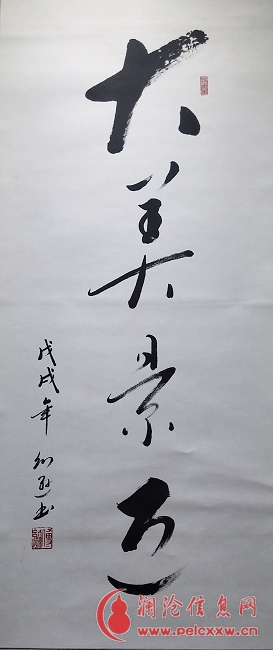 大美景迈
戊戌年
书
澜沧信息网
www.pelcxxw.cn